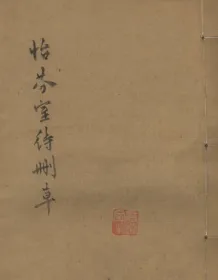 怡芬室待删草